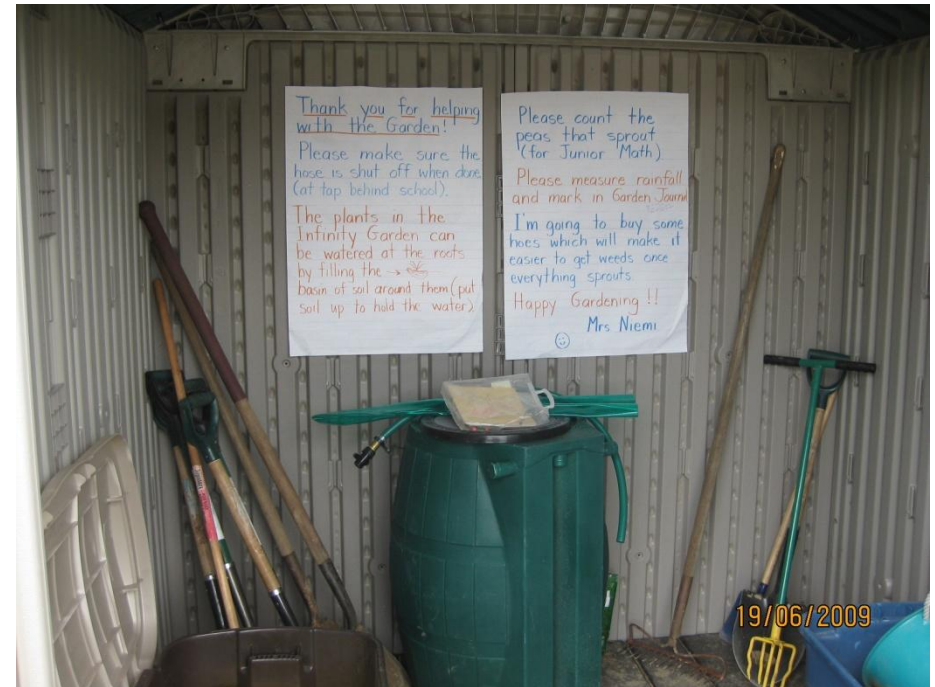 Thank you for helping
with the Garden!
Please make sure the
hose is shut off when done
(at tap behind school).
The plants in the
Infinity Garden can
be watered at the roots
by filling the →
basin of soil around them (put
soil up to hold the water)
Please count the
peas that sprout
(for Junior Math)
Please measure rainfall
and mark in Garden Journal
I'm going to buy some
hoes which will make it
easier to get weeds once
everything sprouts.
Happy Gardening !!
Mrs Niemi
19/06/2009